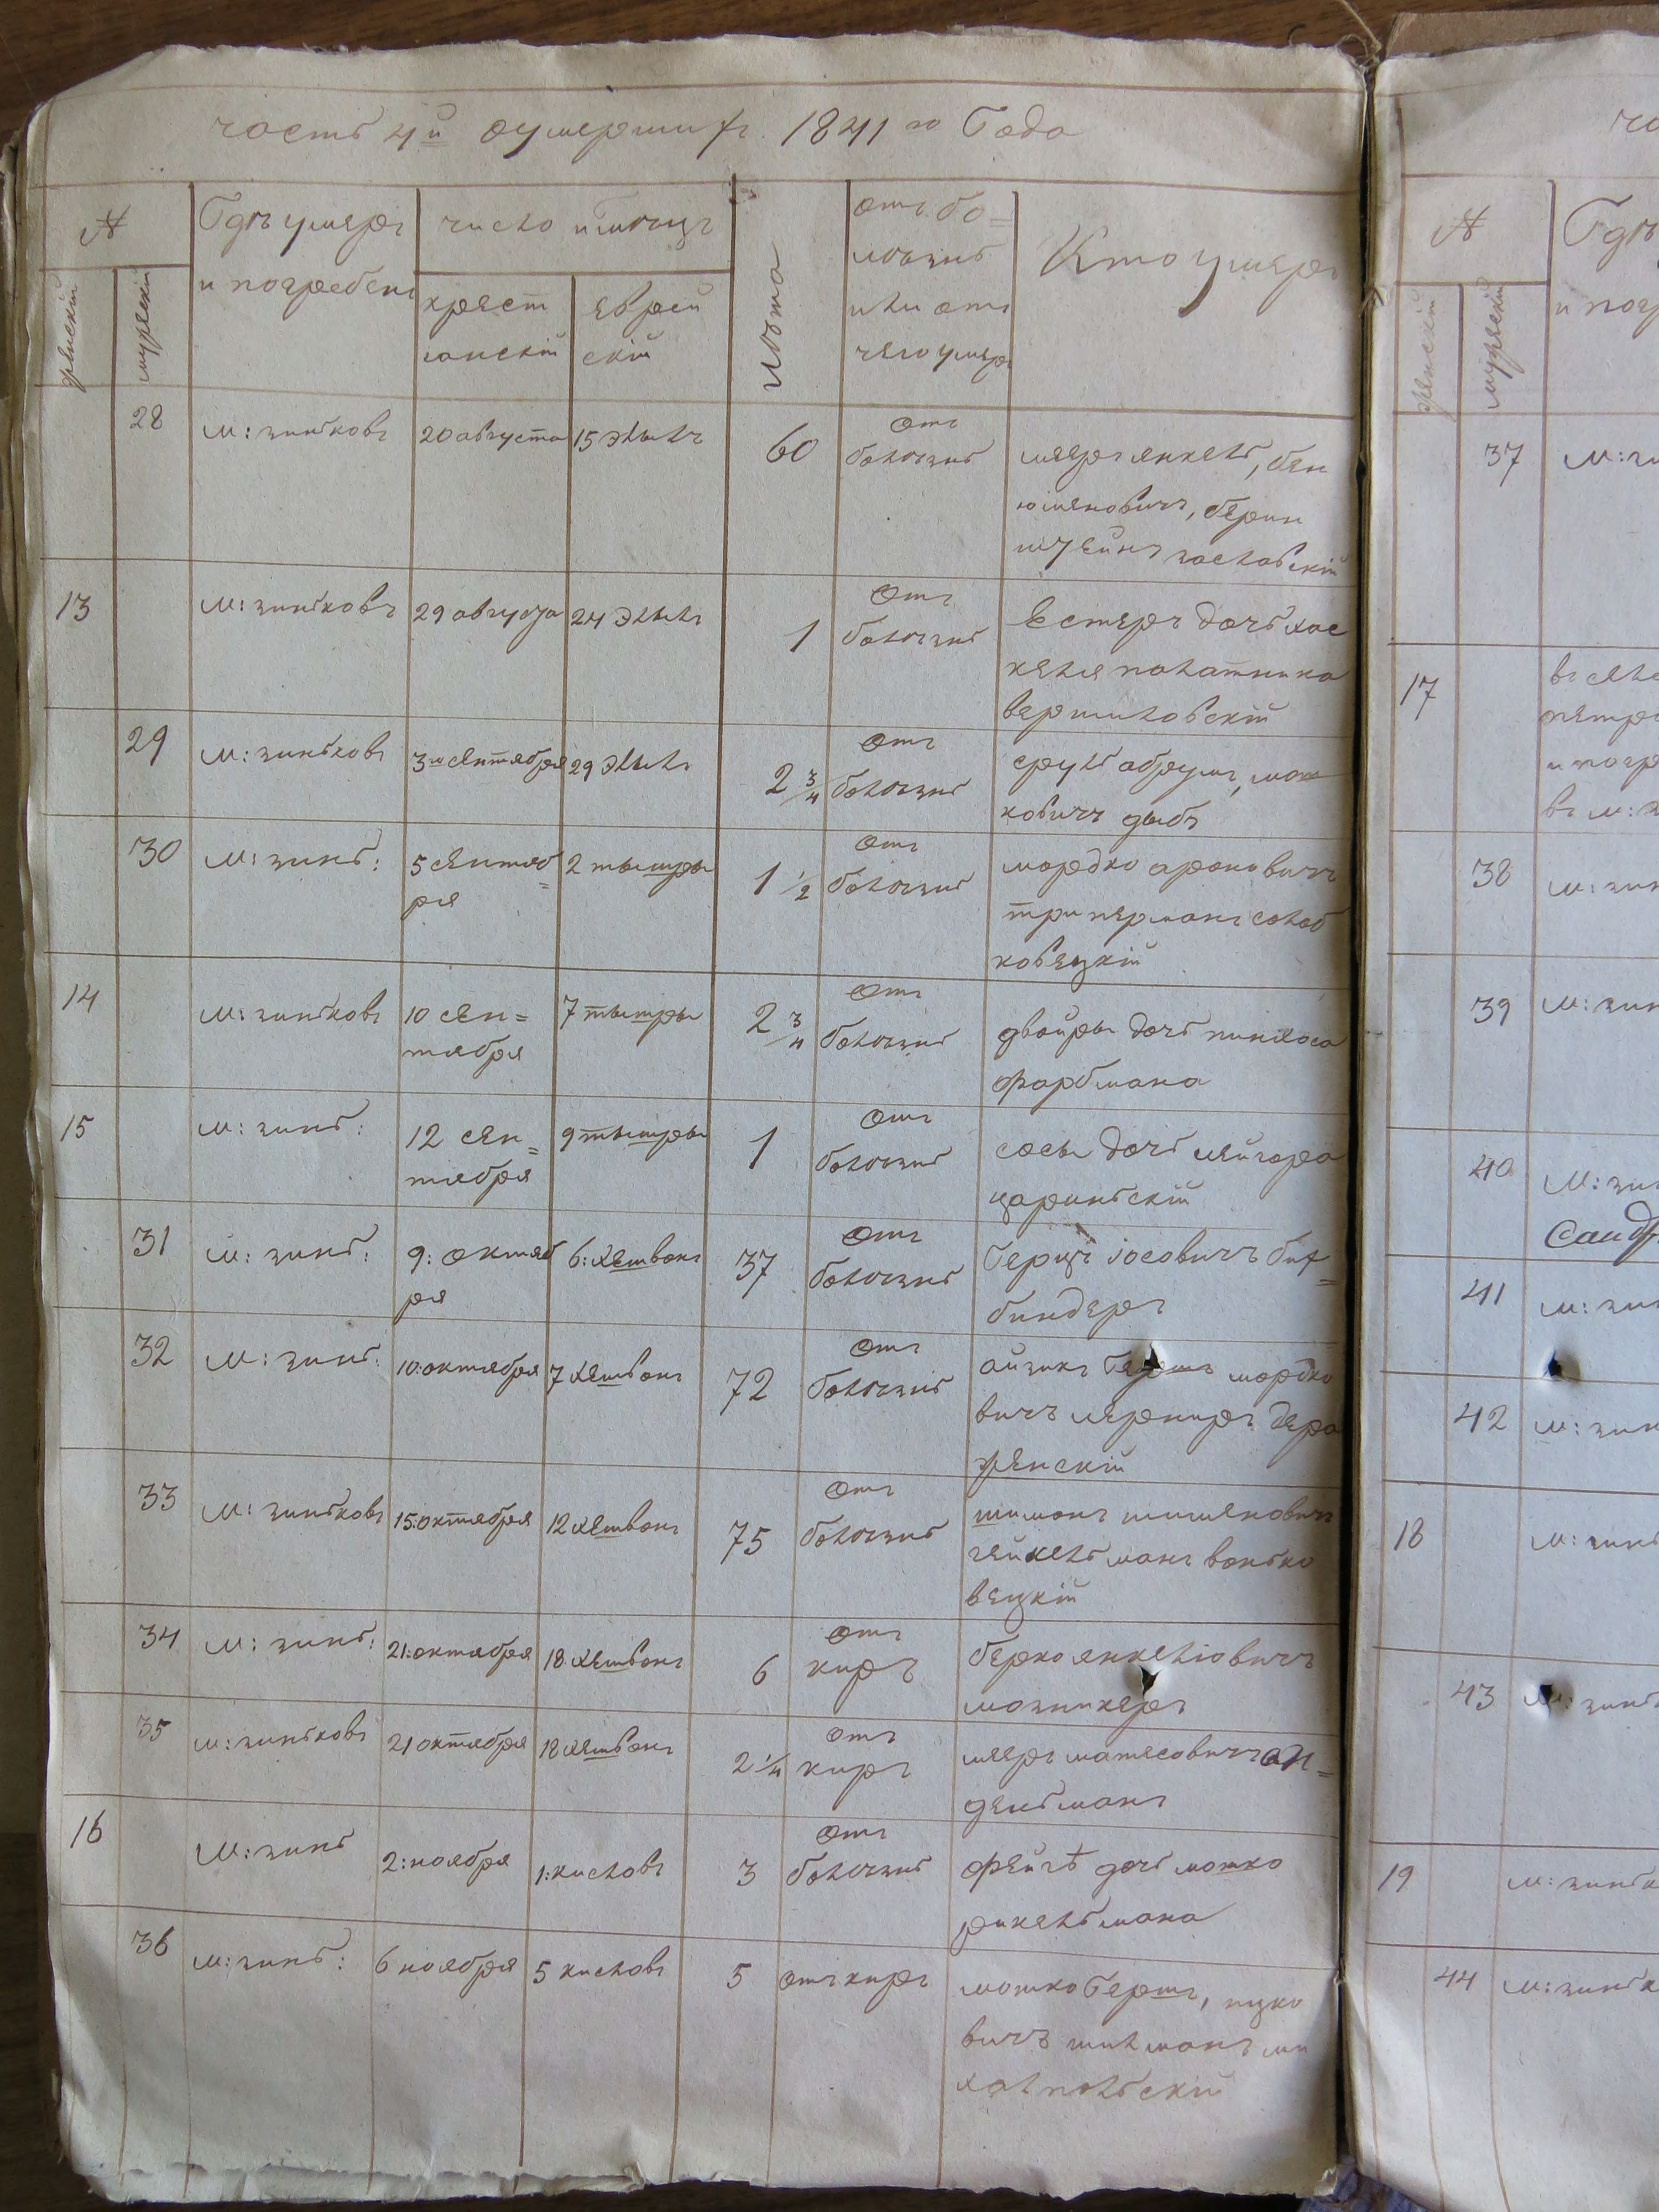 часть 4й оумерших 1841го Года
№
Гдѣ умеръ
и погребенъ
число и мѣсяцъ
женскій
мужескій
христ
іанскій
еврей
скій
лѣта
отъ бо=
лѣзни
или отъ
чего умеръ
Кто умеръ
28 м: зиньковъ 20 августа 15 Элылъ 60 отъ
болѣзни мееръ янкель, бен
юменовичъ, берин
штейнъ заславскій
13 м: зиньковъ 29 августа 24 Элылъ 1 Отъ
болѣзни Естеръ дочь хас
келя палатника
вермиловскій
29 м: зиньковъ 3го сентября 29 Элылъ 2 3/4 Отъ
болѣзни сруль абрумъ, мош
ковичъ дыбъ
30 м: зинь: 5 сентяб=
ря 2 тышры 1 1/2 отъ
болѣзни мордко ароновичъ
триперманъ солоб
ковецкій
14 м: зиньковъ 10 сен=
тября 7 тышры 2 3/4 Отъ
болѣзни двойры дочь пинхоса
фарбмана
15 м: зинь: 12 сен=
тября 9 тышры 1 Отъ
болѣзни сосы дочь мейгора
цариньскій
31 м: зинь: 9: октяб
ря 6: хешвонъ 37 Отъ
болѣзни Герцъ іосовичъ бух=
биндеръ
32 м: зинь: 10: октября 7 хешвонъ 72 Отъ
болѣзни айзикъ Гершъ мордко
вичъ дера
женскій
33 м: зиньковъ 15: октября 12 хешвонъ 75 Отъ
болѣзни шимонъ шименовичъ
гейхельманъ вонько
вецкій
34 м: зинь: 21: октября 18 хешвонъ 6 Отъ
киръ берко янкеліовичъ
мозникеръ
35 м: зиньковъ 21 октября 18 хешвонъ 2 1/4 отъ
киръ мееръ матесовичъ ан=
дельманъ
16 м: зинь 2: ноября 1: кисловъ 3 Отъ
болѣзни фейгѣ дочь мошко
рихельмана
36 м: зинь: 6 ноября 5 кисловъ 5 отъ киръ мошко Гершъ, ицко
вичъ шильманъ ми
халпольскій
№
Гдѣ
и погр
женскій
мужескій
37
17 въ селе
петр
и погр
въ м: з
38 м: зин
39 м: зин
40 м: зин
Сандр
41 м: зин
42 м: зин
18 м: зинь
43 м: зинь
19 м: зиньк
44 м: зиньк